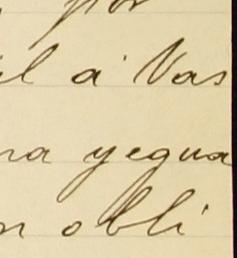 por
il á Vas
na yegua
n obli